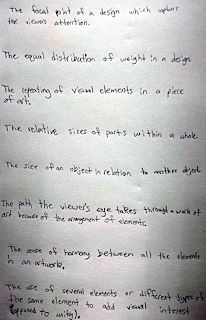 The focal point of a design which capture
the viewers attention.
The equal distribution of weight in a design
The repeating of visual elements in a piece
of art.
The relative sizes of parts within a whole
The size of an object in relation to another object
The path the viewer's eye takes through a work of
art because of the arrangement of elements.
The sense of harmony between all the elements
in an artwork.
The use of several elements or different types of
the same element to add visual interest
(opposed to unity).